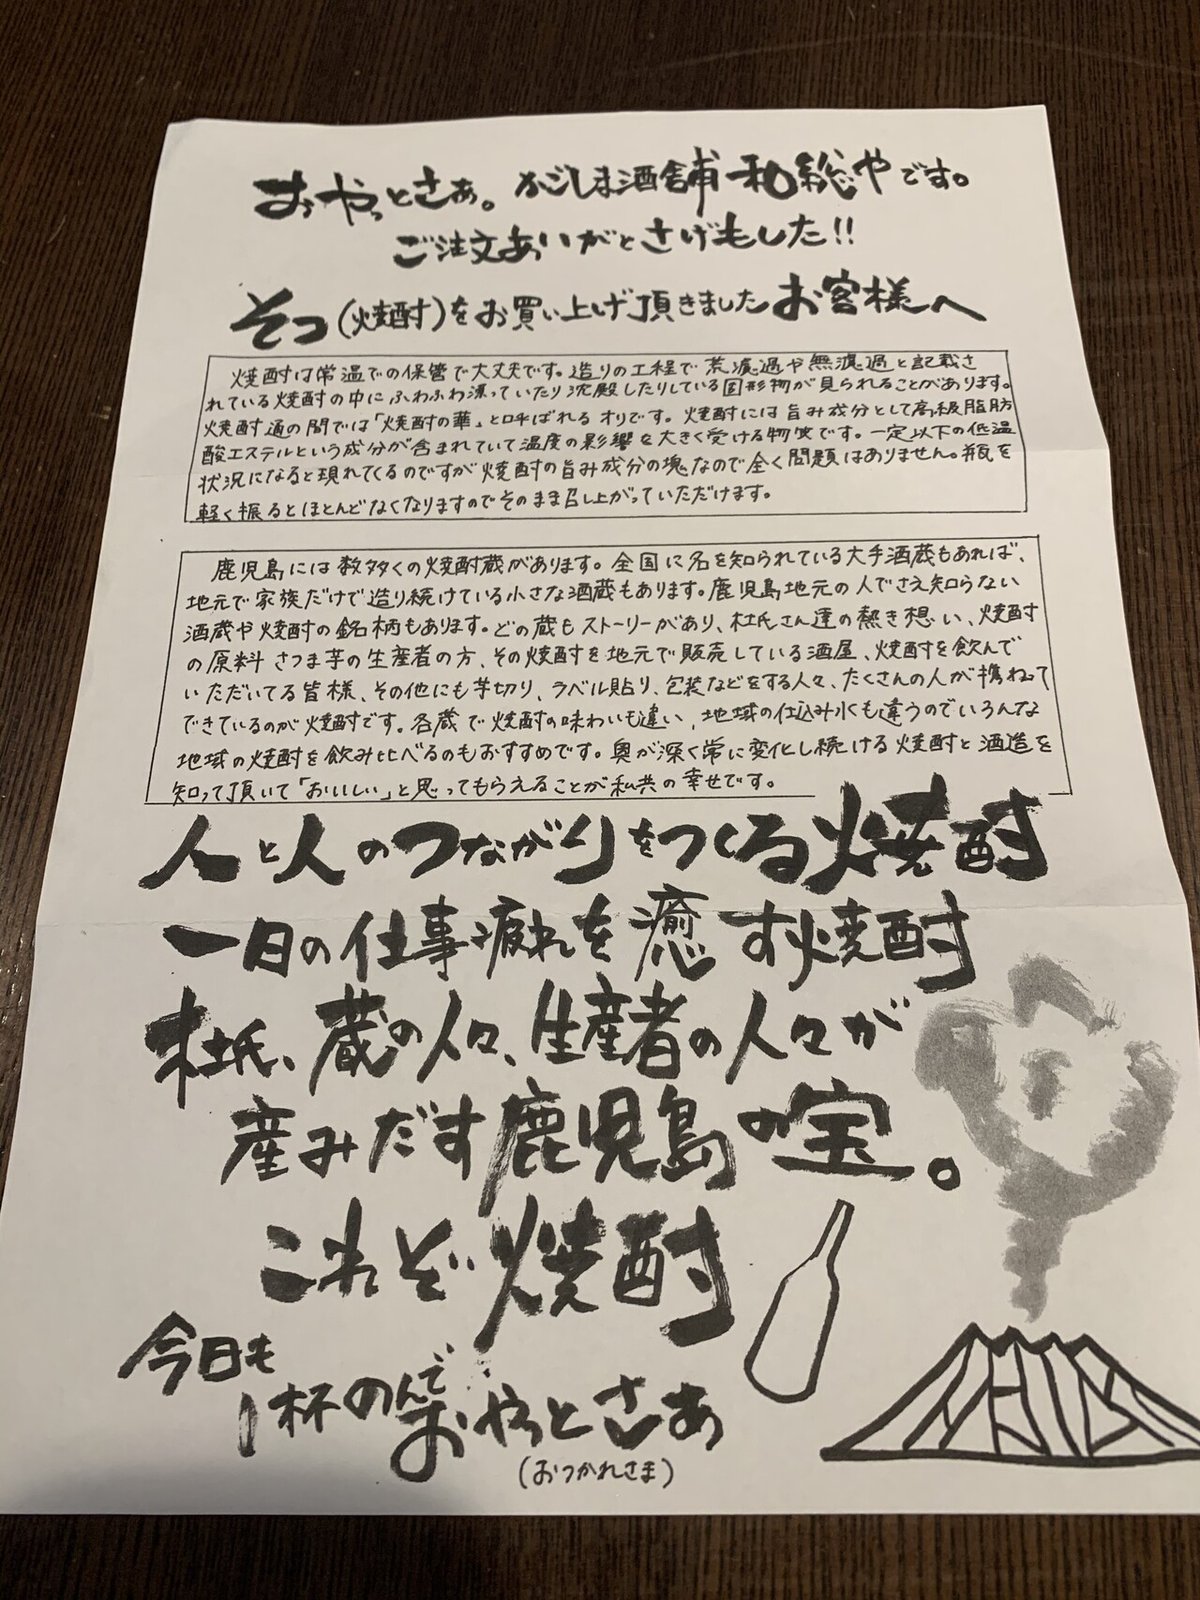 おやっとさぁ。かごしま酒舗和総やです。
ご注文あいがとさげもした!!
そつ(焼酎)をお買い上げ頂きましたお客様へ
焼酎は常温での保管で大丈夫です。造りの工程で荒濾過や無濾過と記載さ
れている焼酎の中にふわふわ漂っていたり沈殿したりしている固形物が見られることがあります。
焼酎通の間では「焼酎の華」と呼ばれるオリです。焼酎には旨み成分として高級脂肪
酸エステルという成分が含まれていて温度の影響を大きく受ける物質です。一定以下の低温
状況になると現れてくるのですが焼酎の旨み成分の塊なので全く問題はありません。瓶を
軽く振るとほとんどなくなりますのでそのまま召し上がっていただけます。
鹿児島には数多くの焼酎蔵があります。全国に名を知られている大手酒蔵もあれば、
地元で家族だけで造り続けている小さな酒蔵もあります。鹿児島地元の人でさえ知らない
酒蔵や焼酎の銘柄もあります。どの蔵もストーリーがあり、杜氏さん達の熱き想い、焼酎
の原料さつま芋の生産者の方、その焼酎を地元で販売している酒屋、焼酎を飲んで
いただいてる皆様、その他にも芋切り、ラベル貼り、包装などをする人々、たくさんの人が携わって
できているのが焼酎です。各蔵で焼酎の味わいも違い、地域の仕込み水も違うのでいろんな
地域の焼酎を飲み比べるのもおすすめです。奥が深く常に変化し続ける焼酎と酒造を
知って頂いて「おいしい」と思ってもらえることが私共の幸せです。
人と人のつながりをつくる焼酎
一日の仕事疲れを癒す焼酎
杜氏、蔵の人々、生産者の人々が
産みだす鹿児島の宝。
これぞ焼酎
今日も
1杯のんでおやっとさぁ
(おつかれさま)